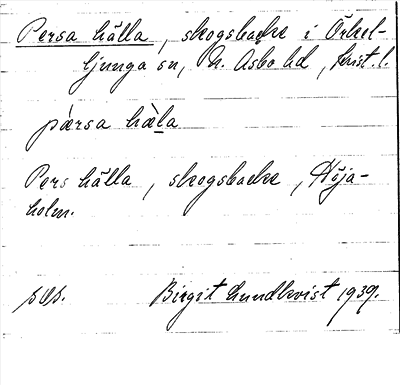 Persa hälla, skogsbacke i Örkel-
ljunga sn, N. Åsbo hd, krist. l.
pærsa hæla
Pers hälla, skogsbacke, Höja-
holm.
Birgit Lundkvist 1939.